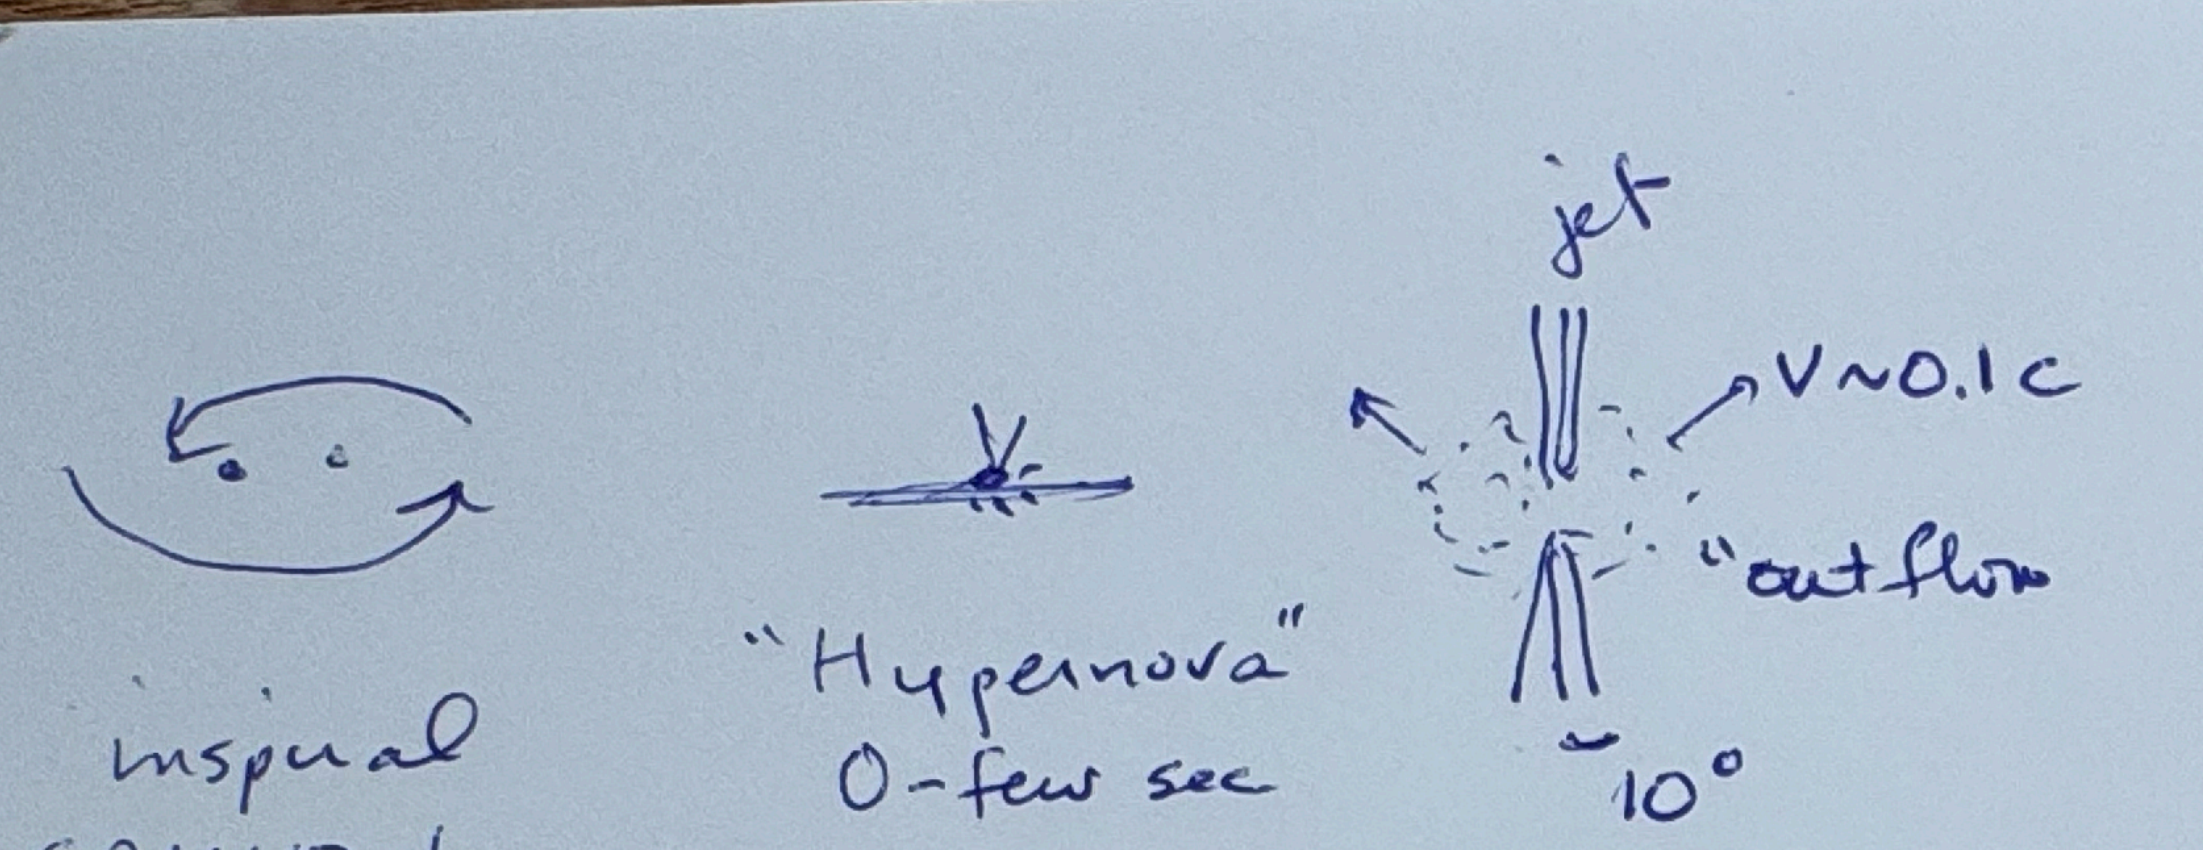 jet
V~0.1c
"outflow
inspiral
"Hypernova"
0-few sec
10°